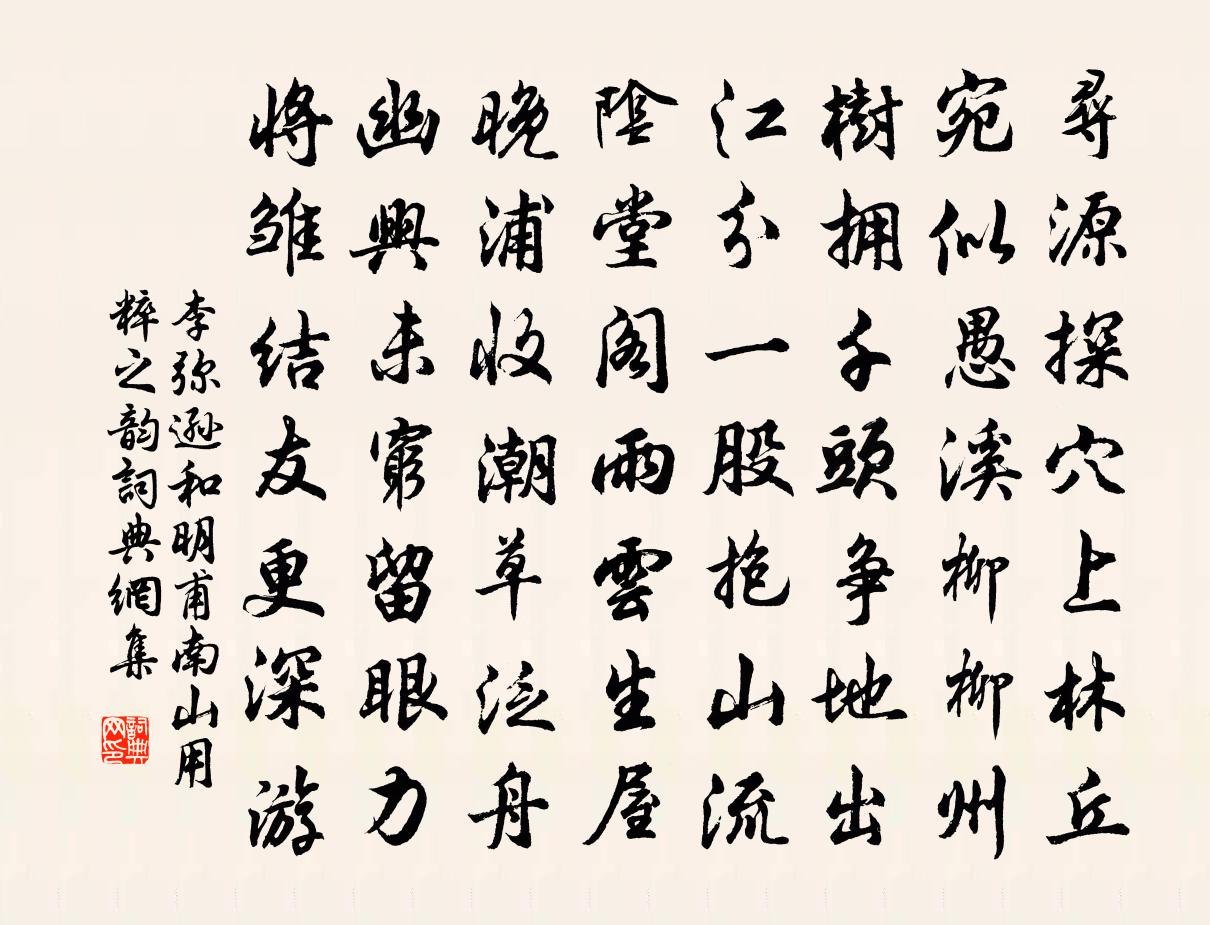 尋源探穴上林丘
宛似愚溪柳柳州
樹拥千頭争地出
江分一股抱山流
陰堂阁雨雲生屋
晚浦收潮草泛舟
幽興未窮留眼力
將雏结友更深游
李弥逊和明甫南山用
粹之韵詞典網集
詞典
网印